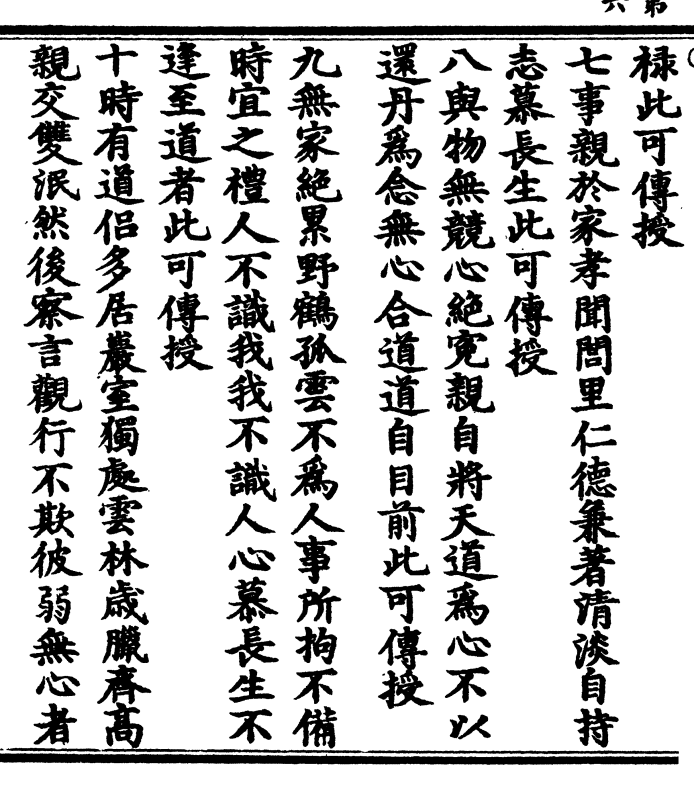 第六
禄此可傳授
七事親於家孝聞閭里仁德兼著清淡自持
志慕長生此可傳授
八與物無競心絶寃親自將天道爲心不以
還丹爲念無心合道道自目前此可傳授
九無家絶累野鶴孤雲不爲人事所拘不備
時宜之禮人不識我我不識人心慕長生不
逢至道者此可傳授
十時有道侣多居巖室獨處雲林歳臘齊高
親交雙泯然後察言觀行不欺彼弱無心者